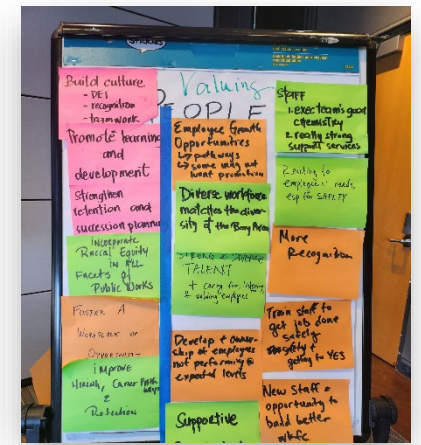 Valuing
PEOPLE
Build culture
- DEI
- recognition
- teamwork
Promote learning
and
development
Strengthen
retention and
succession planning
Incorporate
Racial Equity
in All
Facets of
Public Works
Foster A
Workplace of
improve
Hiring, Career Path
&
Retention
Employee Growth
Opportunities
↳ pathways
↳ some may not
want promotion
Diverse workforce
matches the diver-
sity of the Bay Area
TALENT
+ caring for,
& valuing employees
Develop + owner-
ship of employees
not performing @
expected levels
Supportive
STAFF
1. exec team's good
chemistry
2. really strong
support services
employee's needs,
esp for SAFETY
More
Recognition
Train staff to
get job done
safely
getting to YES
New Staff =
opportunity to
build better
wkfc